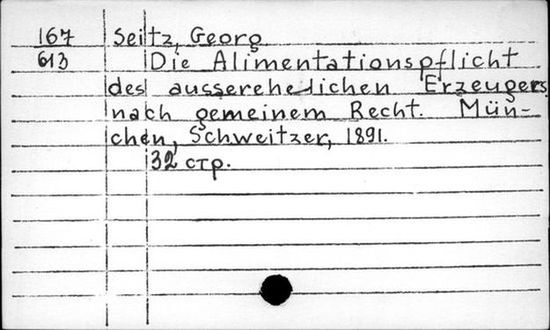 167 Seitz, Georg
613 Die Alimentationspflicht
des ausserehelichen Erzeugers
nach gemeinem Recht. Mün-
chen, Schweitzer, 1891.
32 стр.